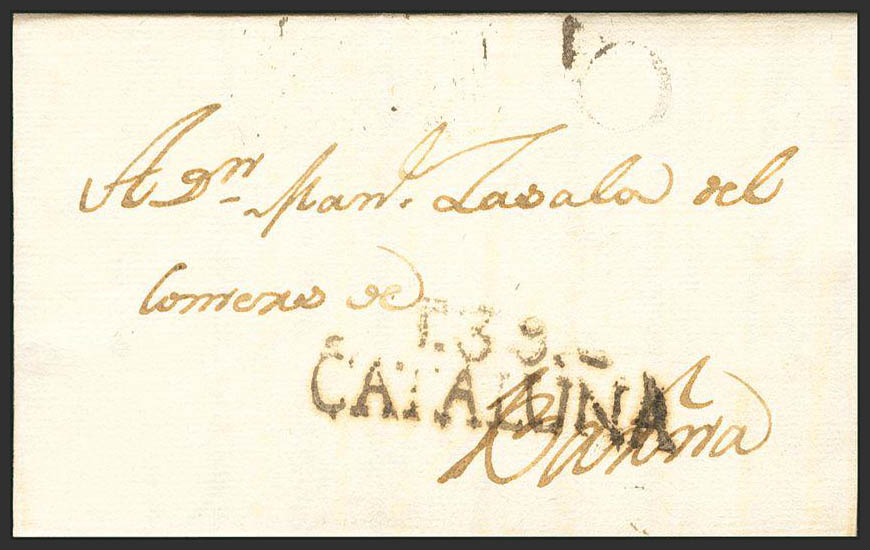 A Dn. Manl. Zavala del
Comercio de
T.39.
CATALUÑA
Barna